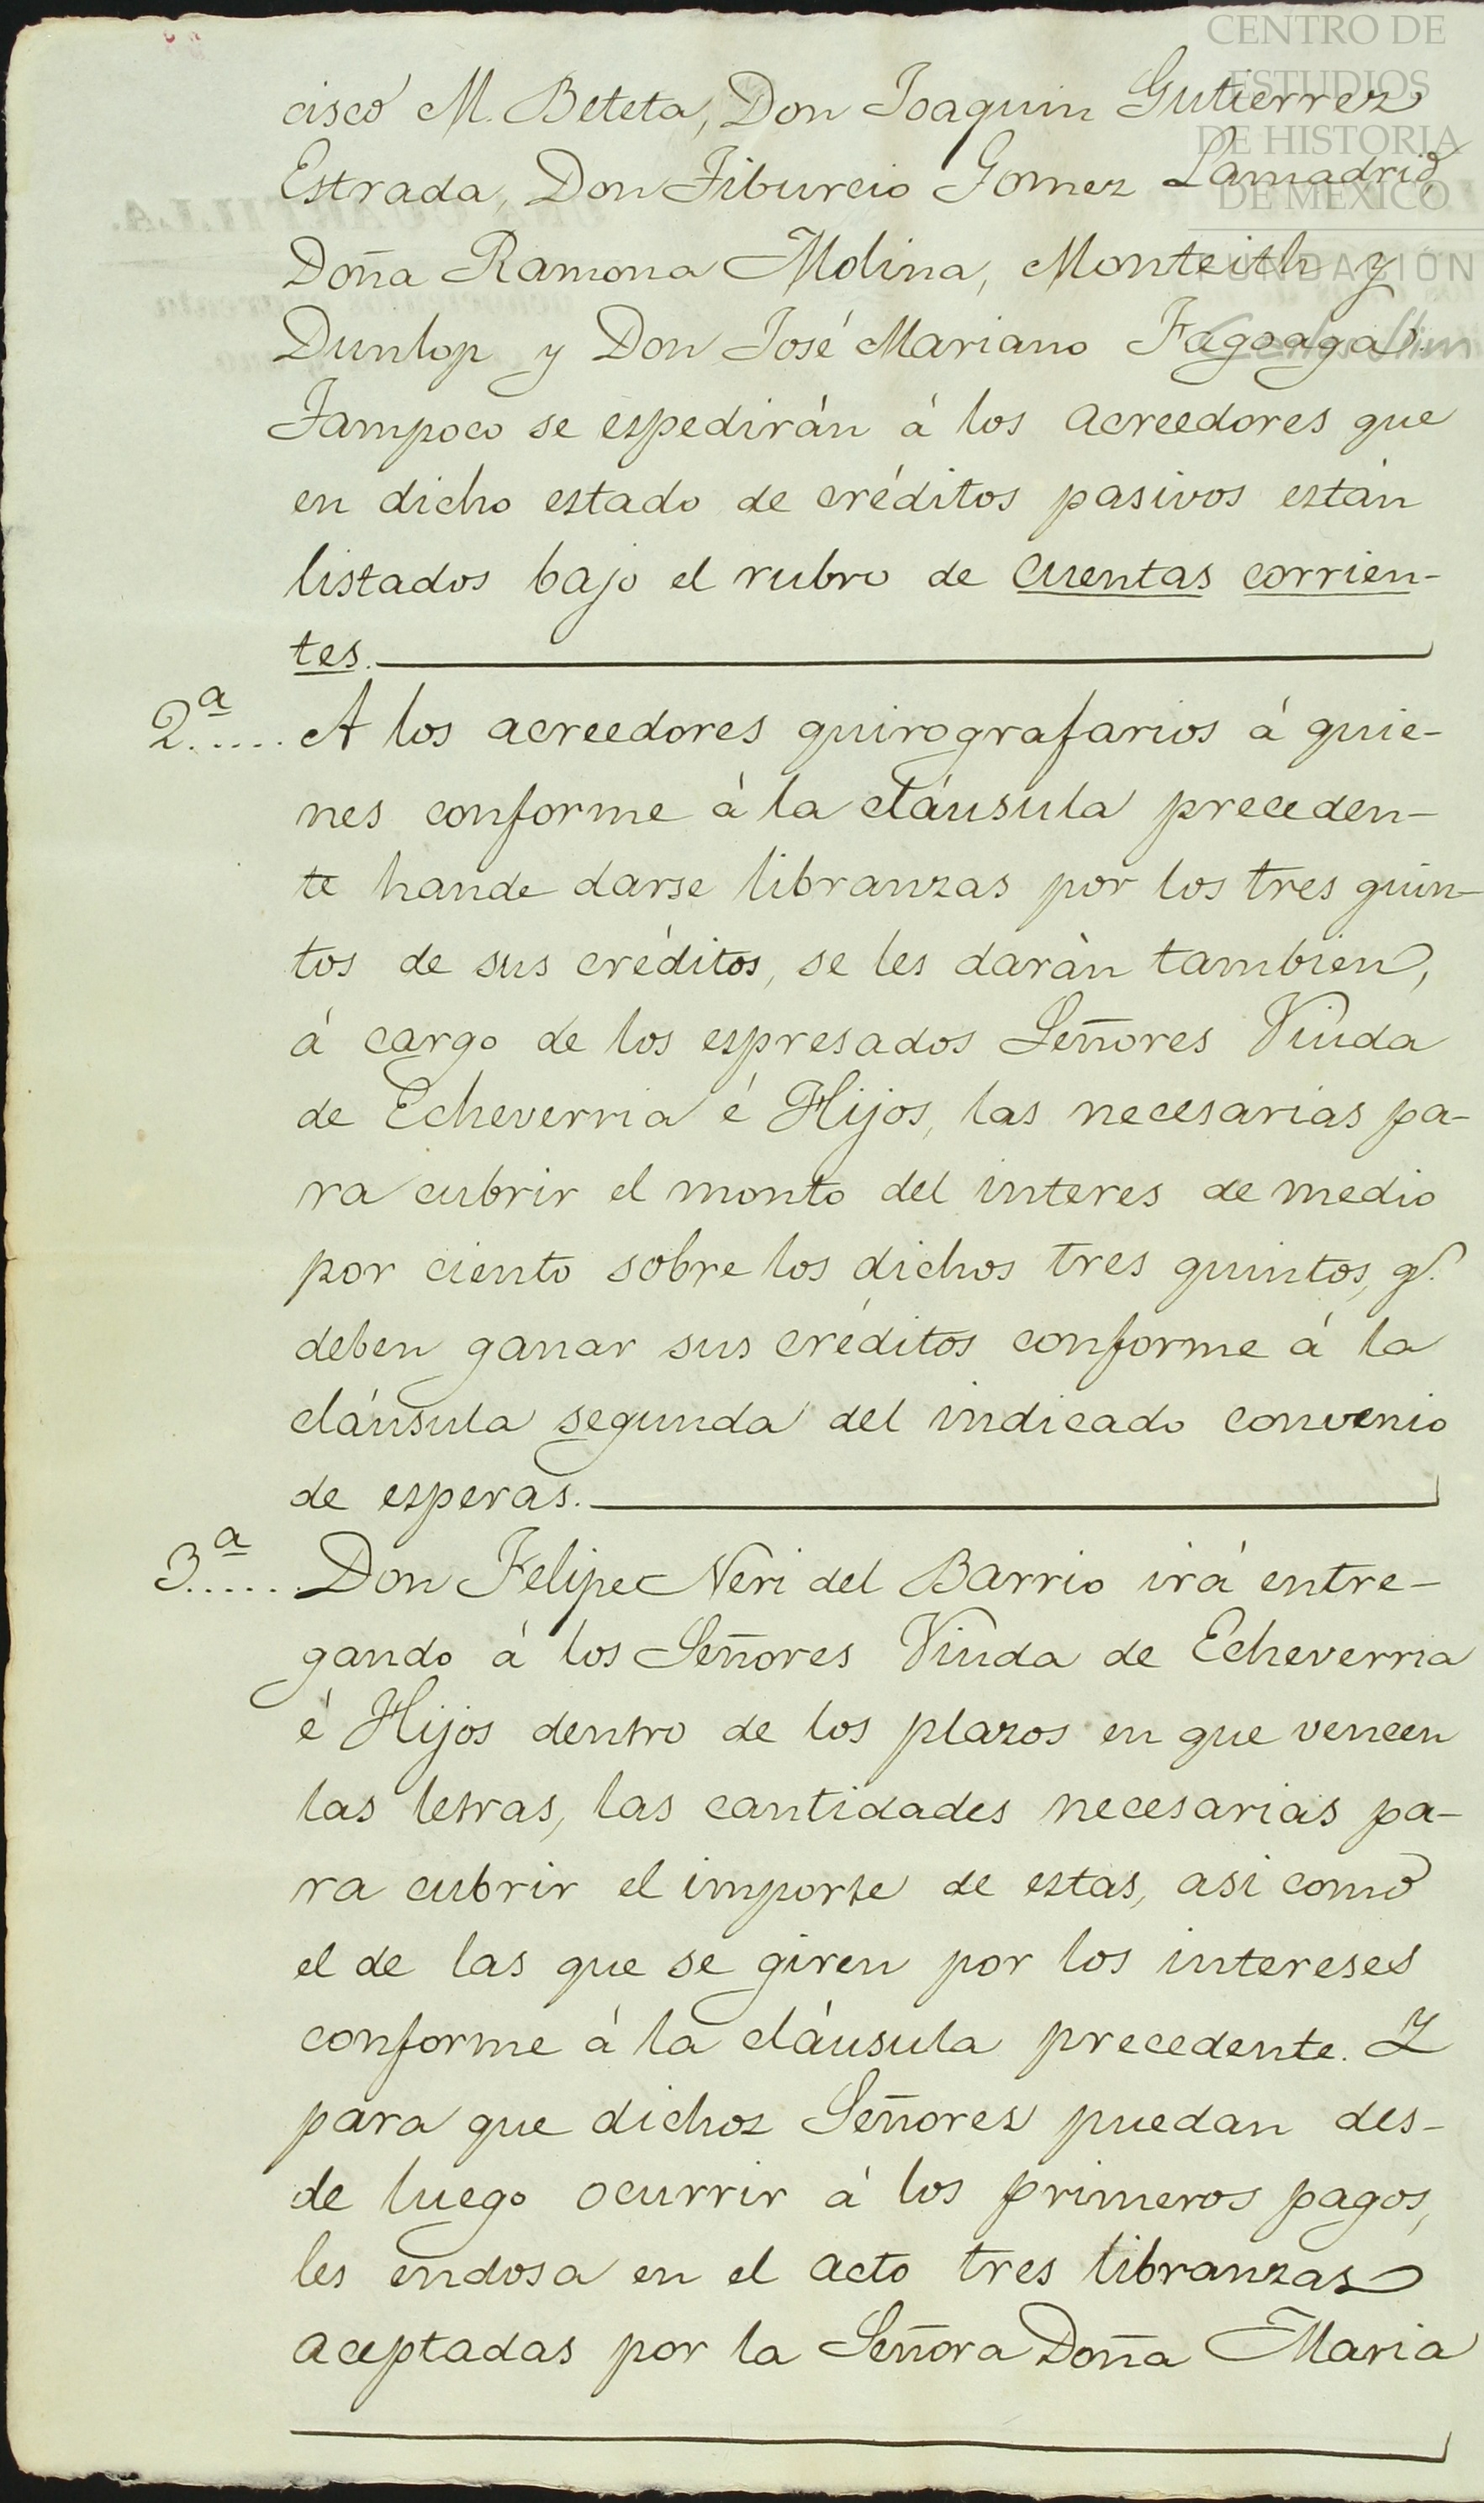 CENTRO DE
ESTUDIOS
DE HISTORIA
DE MEXICO
FUNDACIÓN
Carlos Slim
cisco M. Beteta, Don Joaquin Gutierrez
Estrada, Don Tiburcio Gomez Lamadrid,
Doña Ramona Molina, Monteith y
Dunlop y Don José Mariano Fagoaga.
Tampoco se espedirán á los acreedores que
en dicho estado de créditos pasivos están
listados bajo el rubro de cuentas corrien-
tes.
2.ª..... A los acreedores quirografarios á quie-
nes conforme á la cláusula preceden-
te hande darse libranzas por los tres quin-
tos de sus créditos, se les darán tambien,
á cargo de los espresados Señores Viuda
de Echeverria é Hijos, las necesarias pa-
ra cubrir el monto del interes de medio
por ciento sobre los dichos tres quintos, q.ᵉ
deben ganar sus créditos conforme á la
cláusula segunda del indicado convenio
de esperas.
3.ª..... Don Felipe Neri del Barrio irá entre-
gando á los Señores Viuda de Echeverria
é Hijos dentro de los plazos en que vencen
las letras, las cantidades necesarias pa-
ra cubrir el importe de estas, asi como
el de las que se giren por los intereses
conforme á la cláusula precedente. Y
para que dichos Señores puedan des-
de luego ocurrir á los primeros pagos,
les endosa en el acto tres libranzas
aceptadas por la Señora Doña Maria